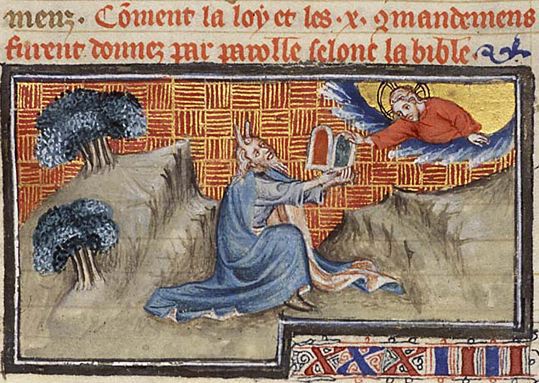 menz. Cōment la loy et les .x. ꝯmandemens
furent donnez par parolle selonc la bible.
XXXIIII